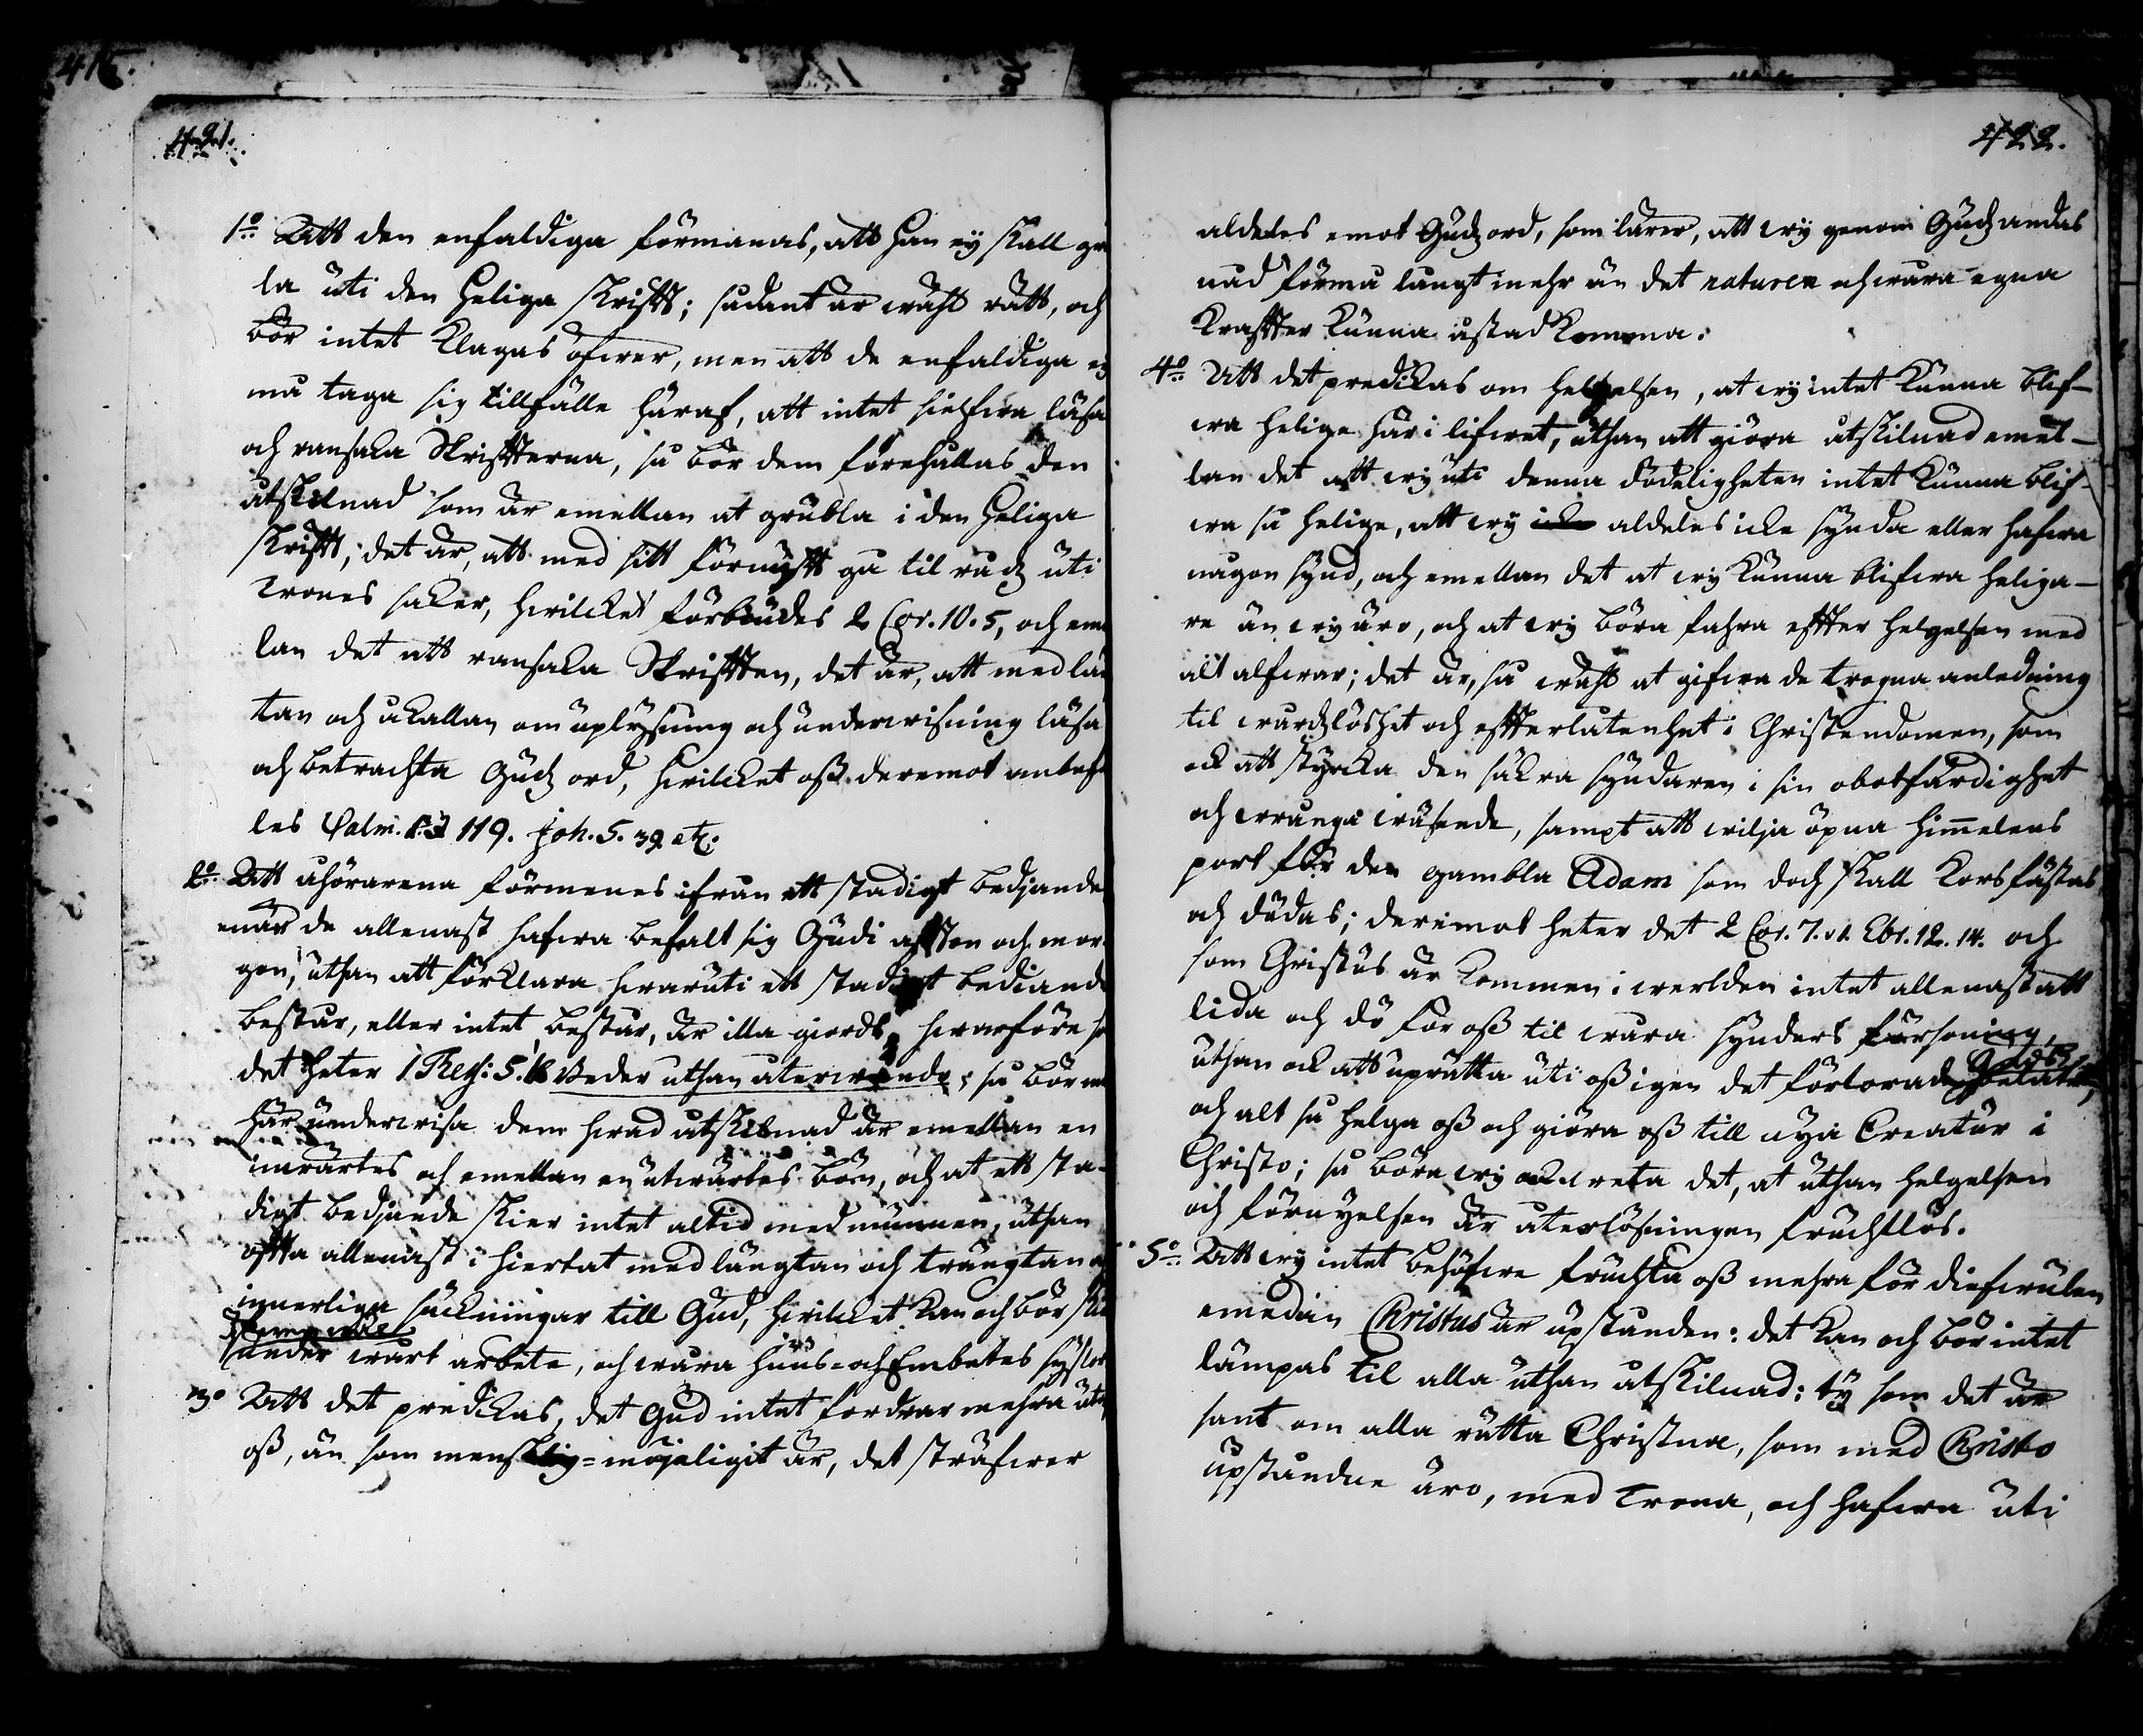 421.
1:o Att den enfaldiga förmanas, att han ey skall gru
la uti den Heliga Skrifft; sådant är wähl rätt, och
bör intet klagas öfwer, men att de enfaldiga ej
må taga sig tillfälle häraf, att intet sielfwa läsa
och ransaka Skriffterna, så bör dem förehållas den
åtskilnad som är emellan at grubla i den Heliga
Skrifft, det är, att med sitt förnufft gå til rådz uti
trones saker, hwilcket förbiudes 2 Cor. 10. 5, och eme
lan det att ransaka Skrifften, det är, att med län
tan och åkallan om uplysning och underwisning läsa
och betrachta Gudz ord, hwilcket oss deremot anbef
les Psalm. 119. Joh. 5. 39 etc.
2:o Att åhörarena förmenes ifrån ett stadigt bedjande
enär de allenast hafwa befalt sig Gudi affton och mor
gon, uthan att förklara hwaruti ett stadigt bediande
består, eller intet består, är illa giordt, hwarföre så
det heter 1 Thess: 5. Beder uthan återwändo; så bör m
här underwisa dem hwad åtskilnad är emellan en
inwärtes och emellan en utwärtes bön, och at ett sta-
digt bedjande skier intet altid med munnen, uthan
offta allenast i hiertat med längtan och trängtan o
innerliga suckningar till Gud, hwilcket kan och bör skie
under wårt arbete, och wåra huus- och Embetes syslor
3:o Att det predikas, det Gud intet fordrar mehra utaf
oss, än som menskelig-möjeligit är, det sträfwer
422.
aldeles emot Gudz ord, som lärer, att wij genom Gudz andas
nåd förmå långt mehr än det naturen och wåra egna
kraffter kunna åstad komma.
4:o Att det predikas om helgelsen, at wij intet kunna blif-
wa helige här i lifwet, uthan att giöra åtskilnad emel-
lan det att wij uti denna dödeligheten intet kunna blif-
wa så helige, att wij icke aldeles icke synda eller hafwa
någon synd, och emellan det at wij kunna blifwa heliga-
re än wij äro, och at wij böra fahra effter helgelsen med
alt alfwar; det är, så wähl at gifwa de trogna anledning
til wårdzlöshet och effterlåtenhet i Christendomen, som
ock att styrcka den säkra syndaren i sin obotfärdighet
och wrånga wäsende, sampt att wilja öpna himmelens
port för den gambla Adam som doch skall korsfästas
och dödas; deremot heter det 2 Cor. 7. v1. Ebr. 12. 14. och
som Christus är kommen i werlden intet allenast att
lida och dö för oss til wåra synders försoning,
uthan ock att uprätta uti oss igen det förlorade Gudz belätet,
och alt så helga oss och giöra oss till nya Creatur i
Christo; så böra wij ock weta det, at uthan helgelsen
och förnyelsen är återlösningen fruchtlös.
5:o Att wij intet behöfwe fruchta oss mehra för diefwulen
emedan Christus är upstånden: det kan och bör intet
lämpas til alla uthan åtskilnad: ty som det är
sant om alla rätta Christna, som med Christo
upståndne äro, med trona, och hafwa uti